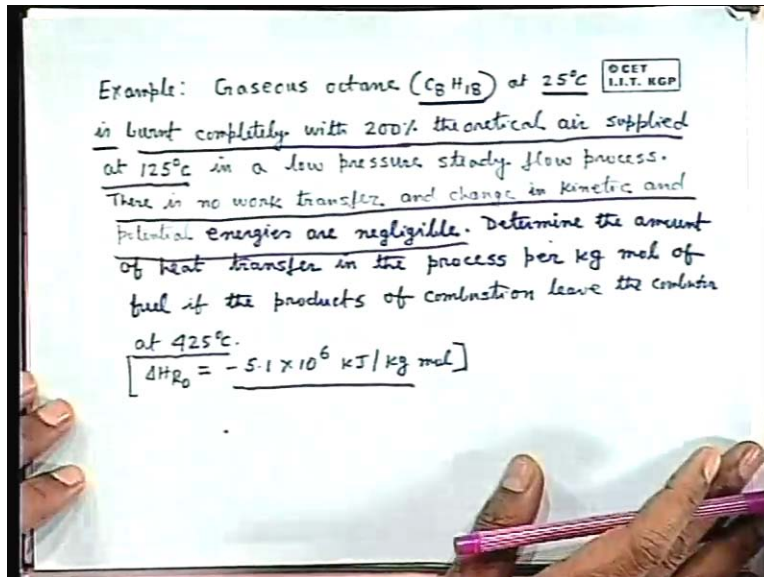 Example: Gaseous octane (C8H18) at 25°C
© CET
I.I.T. KGP
is burnt completely with 200% theoretical air supplied
at 125°C in a low pressure steady flow process.
There is no work transfer and change in kinetic and
potential energies are negligible. Determine the amount
of heat transfer in the process per kg mol of
fuel if the products of combustion leave the combustor
at 425°C.
[ΔHR₀ = -5.1 × 10⁶ kJ/kg mol]